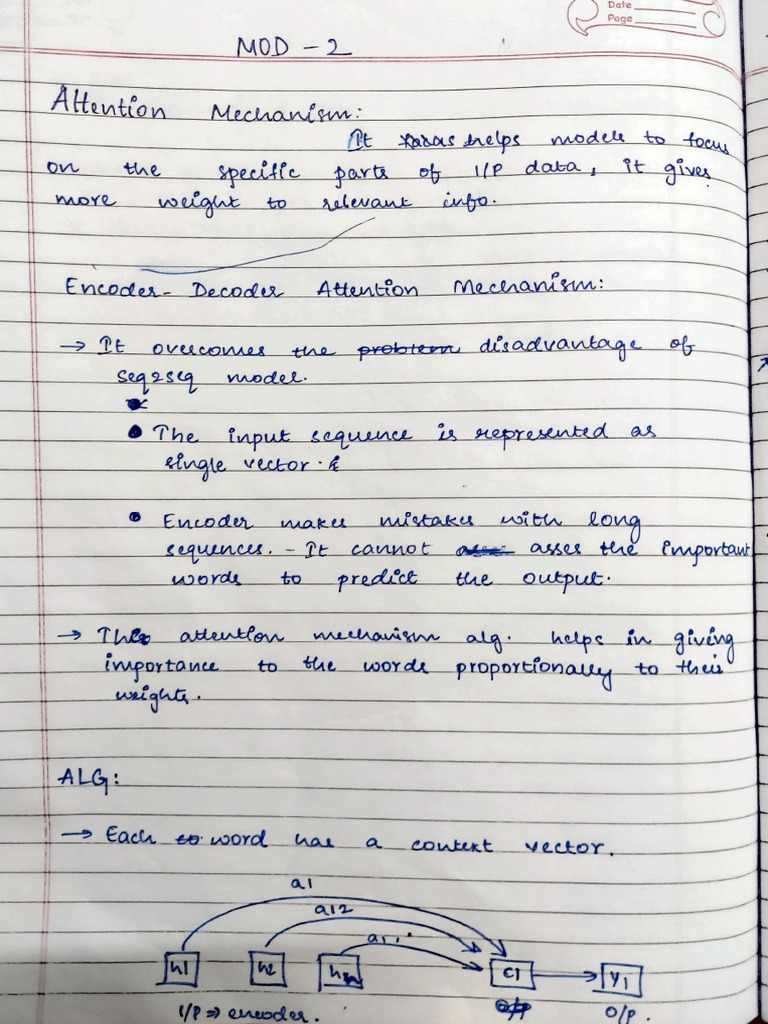 Date
Page
MOD - 2
Attention Mechanism:
It helps models to focus
on the specific parts of I/P data, it gives
more weight to relevant info.
Encoder- Decoder Attention Mechanism:
→ It overcomes the problem disadvantage of
seq2seq model.
• The input sequence is represented as
single vector.
• Encoder makes mistakes with long
sequences. - It cannot asses the important
words to predict the output.
→ The attention mechanism alg. helps in giving
importance to the words proportionally to their
weights.
ALG:
→ Each word has a context vector.
a1
a12
h1 h2 C1 Y1
I/P ⇒ encoder. O/P O/P.